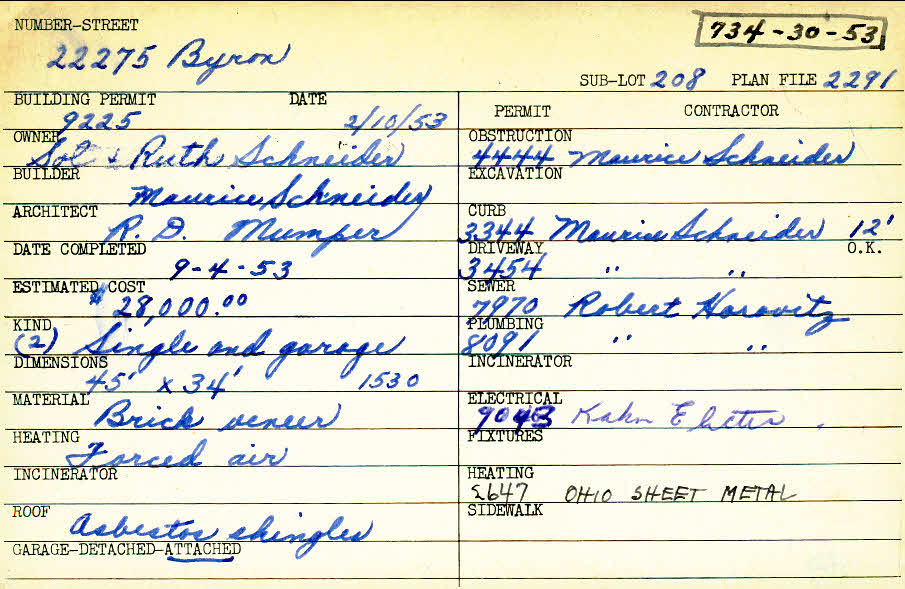 NUMBER-STREET
734-30-53
22275 Byron
SUB-LOT 208 PLAN FILE 2291
BUILDING PERMIT DATE
9225 2/10/53
OWNER
Sol & Ruth Schneider
BUILDER
Maurice Schneider
ARCHITECT
R. D. Mumper
DATE COMPLETED
9-4-53
ESTIMATED COST
$28,000.00
KIND
(2) Single and garage
DIMENSIONS
45' x 34' 1530
MATERIAL
Brick veneer
HEATING
Forced air
INCINERATOR
ROOF
Asbestos shingles
GARAGE-DETACHED-ATTACHED
PERMIT CONTRACTOR
OBSTRUCTION
4444 Maurice Schneider
EXCAVATION
CURB
3344 Maurice Schneider 12'
DRIVEWAY O.K.
3454 " "
SEWER
7970 Robert Horovitz
PLUMBING
8091 " "
INCINERATOR
ELECTRICAL
9043 Kahn Electric
FIXTURES
HEATING
5647 OHIO SHEET METAL
SIDEWALK